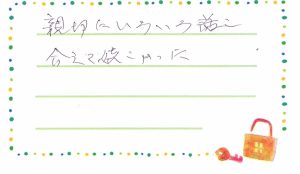 親切にいろいろ話
えて嬉しかった